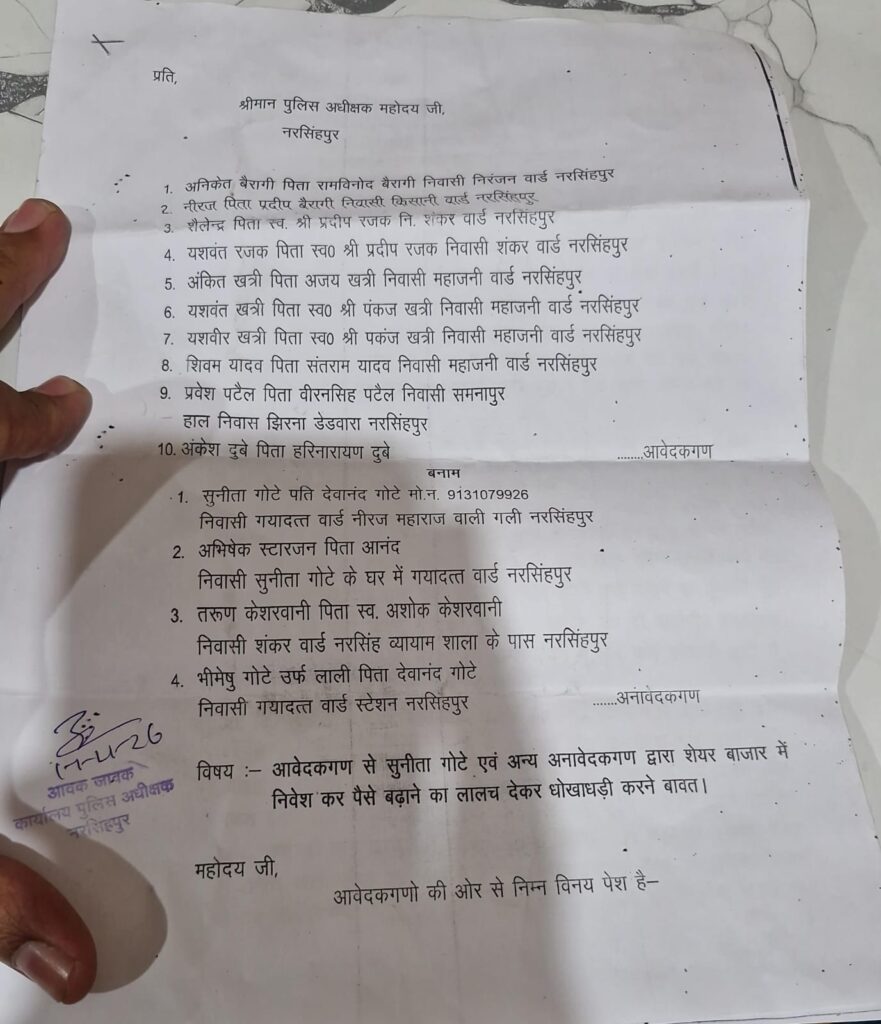 प्रति,
श्रीमान पुलिस अधीक्षक महोदय जी,
नरसिंहपुर
1. अनिकेत बैरागी पिता रामविनोद बैरागी निवासी निरंजन वार्ड नरसिंहपुर
2. नीरज पिता प्रदीप बैरागी निवासी किसानी वार्ड नरसिंहपुर
3. शैलेन्द्र पिता स्व. श्री प्रदीप रजक नि. शंकर वार्ड नरसिंहपुर
4. यशवंत रजक पिता स्व0 श्री प्रदीप रजक निवासी शंकर वार्ड नरसिंहपुर
5. अंकित खत्री पिता अजय खत्री निवासी महाजनी वार्ड नरसिंहपुर
6. यशवंत खत्री पिता स्व0 श्री पंकज खत्री निवासी महाजनी वार्ड नरसिंहपुर
7. यशवीर खत्री पिता स्व0 श्री पकंज खत्री निवासी महाजनी वार्ड नरसिंहपुर
8. शिवम यादव पिता संतराम यादव निवासी महाजनी वार्ड नरसिंहपुर
9. प्रवेश पटैल पिता वीरनसिह पटैल निवासी समनापुर
हाल निवास झिरना डेडवारा नरसिंहपुर
10. अंकेश दुबे पिता हरिनारायण दुबे ........आवेदकगण
बनाम
1. सुनीता गोटे पति देवानंद गोटे मो.न. 9131079926
निवासी गयादत्त वार्ड नीरज महाराज वाली गली नरसिंहपुर
2. अभिषेक स्टारजन पिता आनंद
निवासी सुनीता गोटे के घर में गयादत्त वार्ड नरसिंहपुर
3. तरूण केशरवानी पिता स्व. अशोक केशरवानी
निवासी शंकर वार्ड नरसिंह व्यायाम शाला के पास नरसिंहपुर
4. भीमेषु गोटे उर्फ लाली पिता देवानंद गोटे
निवासी गयादत्त वार्ड स्टेशन नरसिंहपुर ......अनावेदकगण
आवक जावक
कार्यालय पुलिस अधीक्षक
नरसिंहपुर
विषय :– आवेदकगण से सुनीता गोटे एवं अन्य अनावेदकगण द्वारा शेयर बाजार में
निवेश कर पैसे बढ़ाने का लालच देकर धोखाधड़ी करने बावत।
महोदय जी,
आवेदकगणो की ओर से निम्न विनय पेश है–